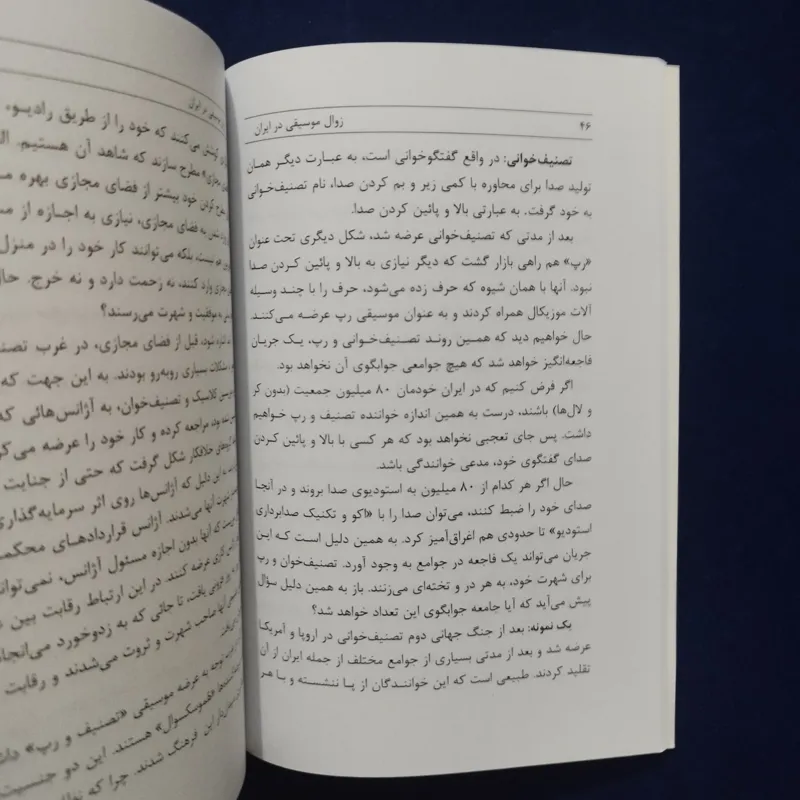 ۴۶
زوال موسیقی در ایران
تصنیف‌خوانی: در واقع گفتگوخوانی است، به عبارت دیگر همان
تولید صدا برای محاوره با کمی زیر و بم کردن صدا، نام تصنیف‌خوانی
به خود گرفت. به عبارتی بالا و پائین کردن صدا.
بعد از مدتی که تصنیف‌خوانی عرضه شد، شکل دیگری تحت عنوان
«رپ» هم راهی بازار گشت که دیگر نیازی به بالا و پائین کردن صدا
نبود. آنها با همان شیوه که حرف زده می‌شود، حرف را با چند وسیله
آلات موزیکال همراه کردند و به عنوان موسیقی رپ عرضه می‌کنند.
حال خواهیم دید که همین روند تصنیف‌خوانی و رپ، یک جریان
فاجعه‌انگیز خواهد شد که هیچ جوامعی جوابگوی آن نخواهد بود.
اگر فرض کنیم که در ایران خودمان ۸۰ میلیون جمعیت (بدون کر
و لال‌ها) باشند، درست به همین اندازه خواننده تصنیف و رپ خواهیم
داشت. پس جای تعجبی نخواهد بود که هر کسی با بالا و پائین کردن
صدای گفتگوی خود، مدعی خوانندگی باشد.
حال اگر هر کدام از ۸۰ میلیون به استودیوی صدا بروند و در آنجا
صدای خود را ضبط کنند، می‌توان صدا را با «اکو و تکنیک صدابرداری
استودیو» تا حدودی هم اغراق‌آمیز کرد. به همین دلیل است که این
جریان می‌تواند یک فاجعه در جوامع به وجود آورد. تصنیف‌خوان و رپ
برای شهرت خود، به هر در و تخته‌ای می‌زنند. باز به همین دلیل سؤال
پیش می‌آید که آیا جامعه جوابگوی این تعداد خواهد شد؟
یک نمونه: بعد از جنگ جهانی دوم تصنیف‌خوانی در اروپا و آمریکا
عرضه شد و بعد از مدتی بسیاری از جوامع مختلف از جمله ایران از آن
تقلید کردند. طبیعی است که این خوانندگان از پا ننشسته و با هر
در ایران
کوشش می‌کنند که خود را از طریق رادیو،
مجازی» مطرح سازند که شاهد آن هستیم.
کردن خود بیشتر از فضای مجازی بهره
به فضای مجازی، نیازی به اجازه از
هم نیست، بلکه می‌توانند کار خود را در منزل
مجازی وارد کنند، نه زحمت دارد و نه خرج. حال
به موفقیت و شهرت می‌رسند؟
شود، قبل از فضای مجازی، در غرب
مشکلات بسیاری روبه‌رو بودند. به این جهت که
کلاسیک و تصنیف‌خوان، به آژانس‌هائی که
مراجعه کرده و کار خود را عرضه
خلافکار شکل گرفت که حتی از جنایت
به این دلیل که آژانس‌ها روی اثر سرمایه‌گذاری
شهرت آنها می‌شدند. آژانس قراردادهای
که آنها بدون اجازه مسئول آژانس،
عرضه کنند. در این ارتباط رقابت بین
یافت، تا جائی که به زدوخورد
آنها صاحب شهرت و ثروت می‌شدند و رقابت
توجه به عرضه موسیقی «تصنیف و رپ»
هستند. این دو
این فرهنگ شدند. چرا که